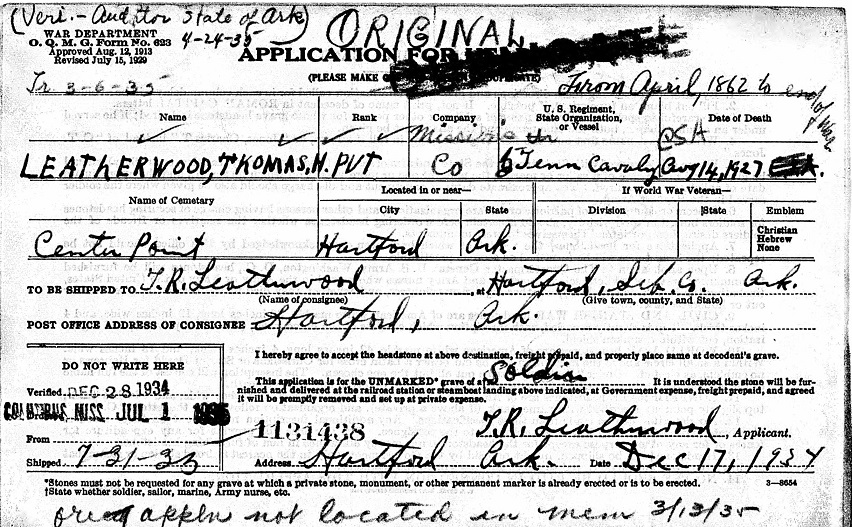 (Veri. - Auditor State of Ark) ORIGINAL
WAR DEPARTMENT
O. Q. M. G. Form No. 623
Approved Aug. 12, 1913
Revised July 15, 1929
4-24-35
APPLICATION FOR
(PLEASE MAKE
Tr 3-6-35
From April, 1862 to end of War
Name Rank Company U. S. Regiment, State Organization, or Vessel Date of Death
CSA
LEATHERWOOD, THOMAS, H. PVT Co Tenn Cavaly Aug 14, 1927
Name of Cemetary Located in or near— If World War Veteran—
City State Division State Emblem
Christian
Hebrew
None
Center Point Hartford Ark.
TO BE SHIPPED TO T.R. Leatherwood, at Hartford, Seb. Co. Ark.
(Name of consignee) (Give town, county, and State)
POST OFFICE ADDRESS OF CONSIGNEE Hartford, Ark.
I hereby agree to accept the headstone at above destination, freight prepaid, and properly place same at decedent's grave.
DO NOT WRITE HERE
This application is for the UNMARKED* grave of a† Soldier It is understood the stone will be fur-
nished and delivered at the railroad station or steamboat landing above indicated, at Government expense, freight prepaid, and agreed
it will be promptly removed and set up at private expense.
Verified DEC 28 1934
COLUMBUS MISS JUL 1 1935
From
1131438
T.R. Leatherwood, Applicant.
Shipped 7-31-35
Address Hartford Ark. Date Dec 17, 1934
*Stones must not be requested for any grave at which a private stone, monument, or other permanent marker is already erected or is to be erected. 3—8654
†State whether soldier, sailor, marine, Army nurse, etc.
appln not located in mem 3/13/35